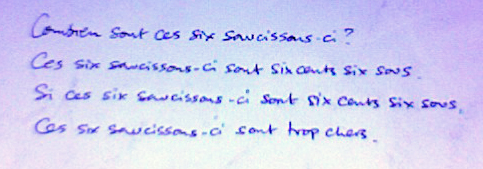 Combien sont ces six saucissons-ci?
Ces six saucissons-ci sont six cents six sous.
Si ces six saucissons-ci sont six cents six sous,
Ces six saucissons-ci sont trop chers.